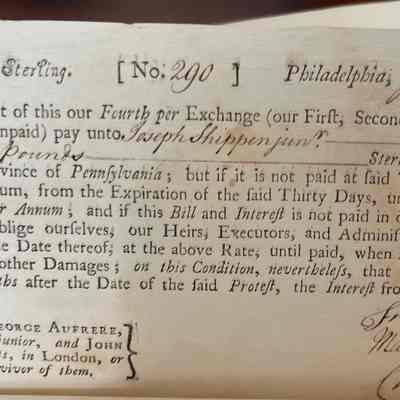 Sterling. [No. 290 ] Philadelphia,
t of this our Fourth per Exchange (our First, Secon
npaid) pay unto Joseph Shippen junr.
Pounds Ster
vince of Pennsylvania; but if it is not paid at said T
um, from the Expiration of the said Thirty Days, un
r Annum; and if this Bill and Interest is not paid in o
blige ourselves, our Heirs, Executors, and Adminis
e Date thereof; at the above Rate, until paid, when
other Damages; on this Condition, nevertheless, that
ths after the Date of the said Protest, the Interest fro
EORGE AUFRERE,
junior, and JOHN
s, in London, or
rvivor of them.